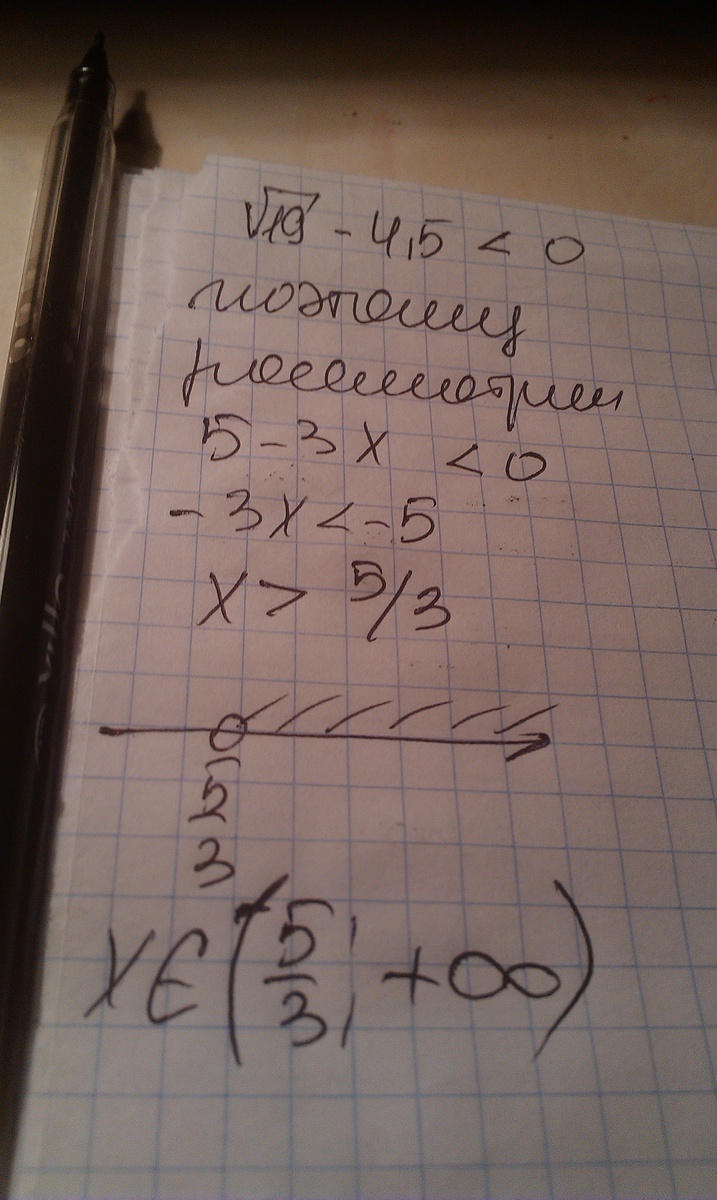 √19 - 4,5 < 0
поэтому
рассмотрим
5 - 3x < 0
- 3x < -5
x > 5/3
5
3
x ∈ (5/3; +∞)